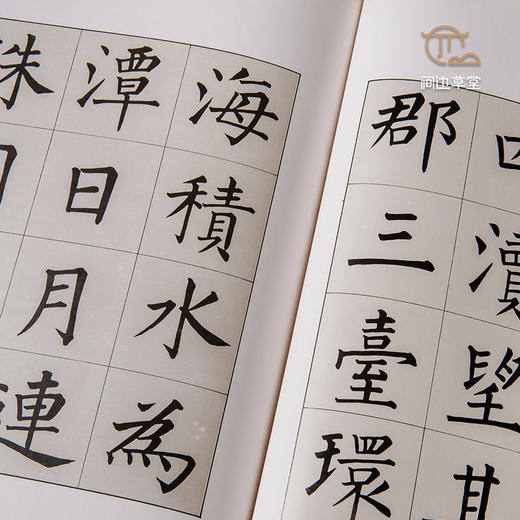 草堂
四瀆望其
郡三臺環
海積水為
潭日月連
珠